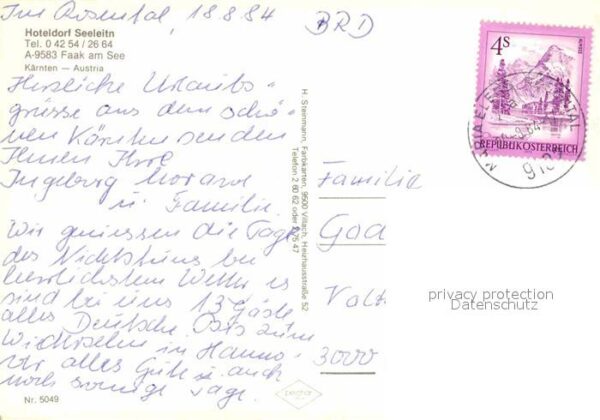 Im Rosental, 18.8.84
BRD
Hoteldorf Seeleitn
Tel. 0 42 54 / 26 64
A-9583 Faak am See
Kärnten — Austria
Herzliche Urlaubs-
grüsse aus dem schö-
nen Kärnten senden
Ihnen Ihre
Ingeborg
u. Familie.
Wir geniessen die Tage
des Nichtstuns bei
herrlichstem Wetter es
sind bei uns 13 Gäste
alles Deutsche bis zum
in Hanno-
ver alles Gute u. auch
noch sonnige Tage.
Nr. 5049
H. Steinmann, Farbkarten, 9500 Villach, Heizhausstraße 52
Telefon 2 60 62 oder
4S
ALMSEE
REPUBLIK ÖSTERREICH
MARIA
Familie
Goa
Valt
3000
privacy protection
Datenschutz